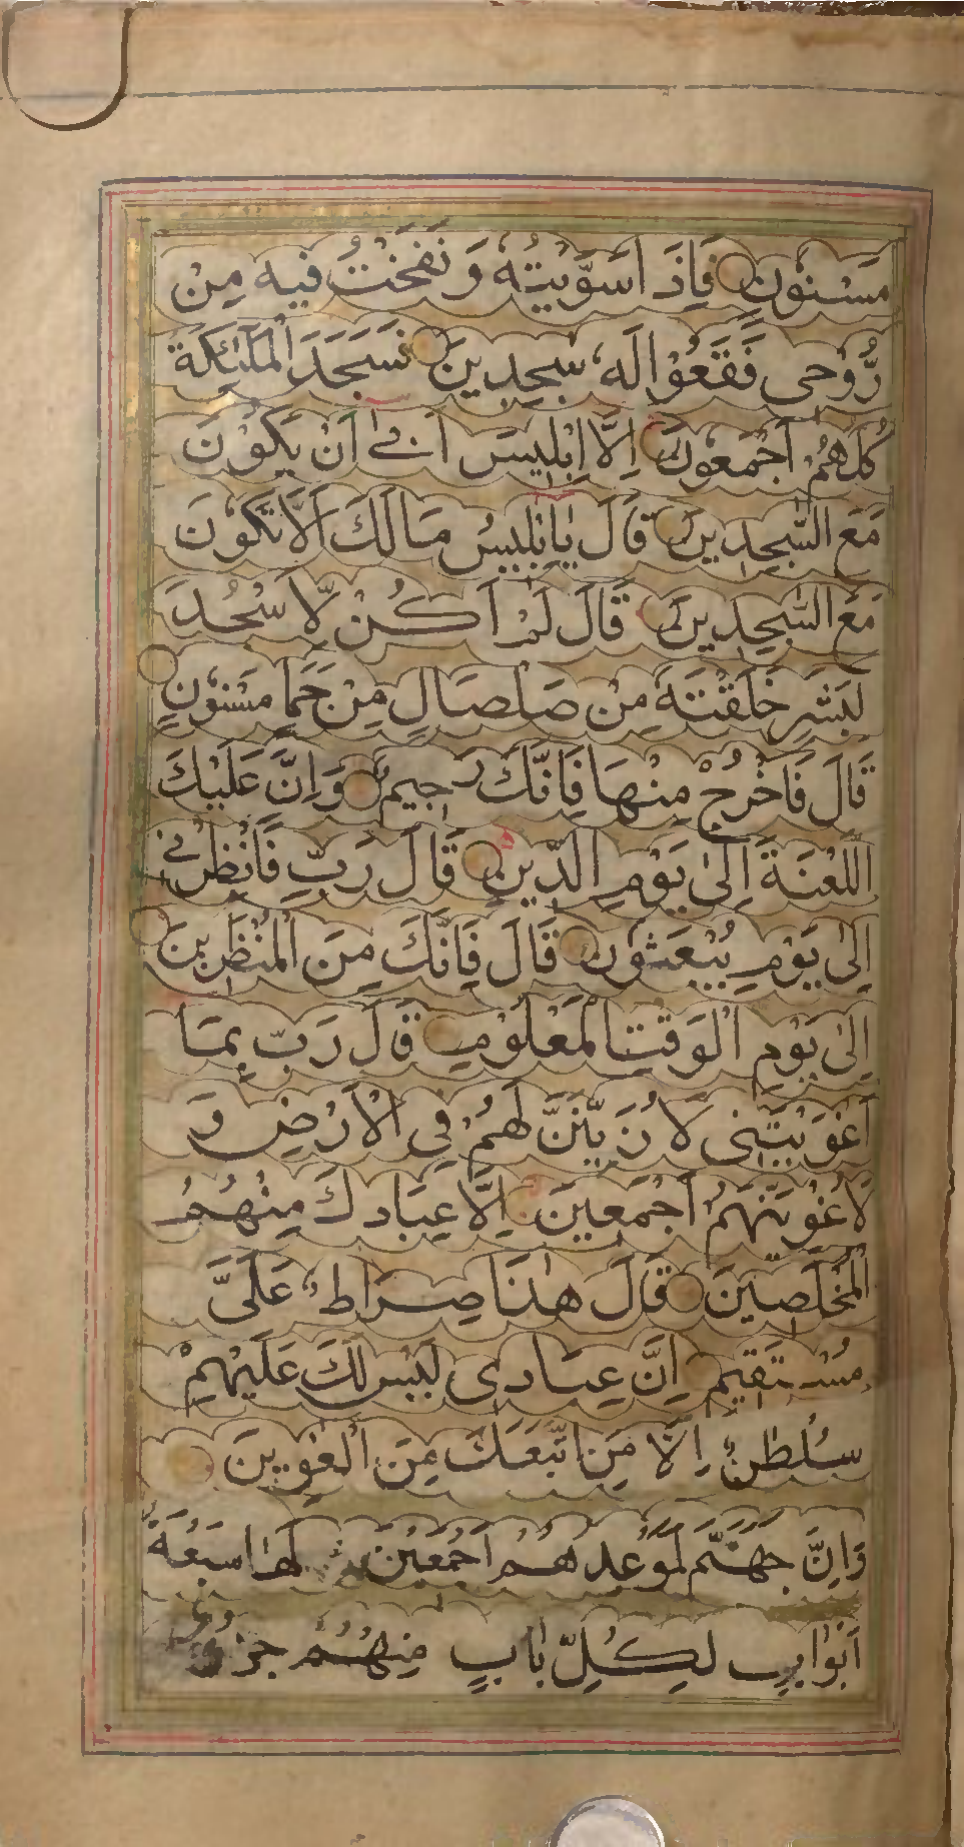 مَسْنُونٍ فَاِذَ اسَوَّيْتُهٗ وَ نَفَخْتُ فِيهِ مِنْ
رُّوْحِى فَقَعُوْا لَهٗ سٰجِدِينَ فَسَجَدَ الْمَلٰئِكَةُ
كُلُّهُمْ اَجْمَعُونَ اِلَّا اِبْلِيسَ اَبٰى اَنْ يَكُوْنَ
مَعَ السّٰجِدِينَ قَالَ يٰاِبْلِيسُ مَالَكَ اَلَّا تَكُوْنَ
مَعَ السّٰجِدِينَ قَالَ لَمْ اَكُنْ لِّاَسْجُدَ
لِبَشَرٍ خَلَقْتَهٗ مِنْ صَلْصَالٍ مِنْ حَمَاٍ مَسْنُوْنٍ
قَالَ فَاخْرُجْ مِنْهَا فَاِنَّكَ رَجِيمٌ وَاِنَّ عَلَيْكَ
اللَّعْنَةَ اِلٰى يَوْمِ الدِّينِ قَالَ رَبِّ فَاَنْظِرْنِى
اِلٰى يَوْمِ يُبْعَثُونَ قَالَ فَاِنَّكَ مِنَ الْمُنْظَرِينَ
اِلٰى يَوْمِ الْوَقْتِ الْمَعْلُوْمِ قَالَ رَبِّ بِمَا
اَغْوَيْتَنِى لَاُزَيِّنَنَّ لَهُمْ فِى الْاَرْضِ وَ
لَاُغْوِيَنَّهُمْ اَجْمَعِينَ اِلَّا عِبَادَكَ مِنْهُمُ
الْمُخْلَصِينَ قَالَ هٰذَا صِرَاطٌ عَلَىَّ
مُسْتَقِيمٌ اِنَّ عِبَادِى لَيْسَ لَكَ عَلَيْهِمْ
سُلْطٰنٌ اِلَّا مَنِ اتَّبَعَكَ مِنَ الْغٰوِينَ
وَاِنَّ جَهَنَّمَ لَمَوْعِدُهُمْ اَجْمَعِيْنَ لَهَا سَبْعَةُ
اَبْوَابٍ لِكُلِّ بَابٍ مِنْهُمْ جُزْءٌ